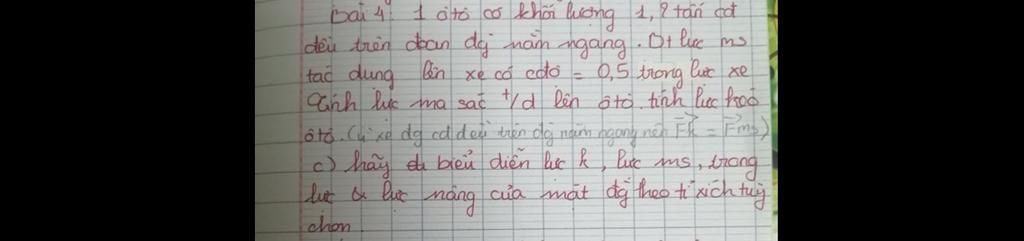 Bài 4: 1 ôtô có khối lượng 1,2 tấn cđ
đều trên đoạn dg nằm ngang. Dt lực ms
tác dụng lên xe có cđộ = 0,5 trọng lực xe
a) tính lực ma sát t/d lên ôtô. tính lực kéo
ôtô. (vì xe dg cđ đều trên dg nằm ngang nên Fk = Fms)
c) hãy biểu diễn lực k, lực ms, trọng
lực & lực nâng của mặt dg theo tỉ xích tuỳ
chọn